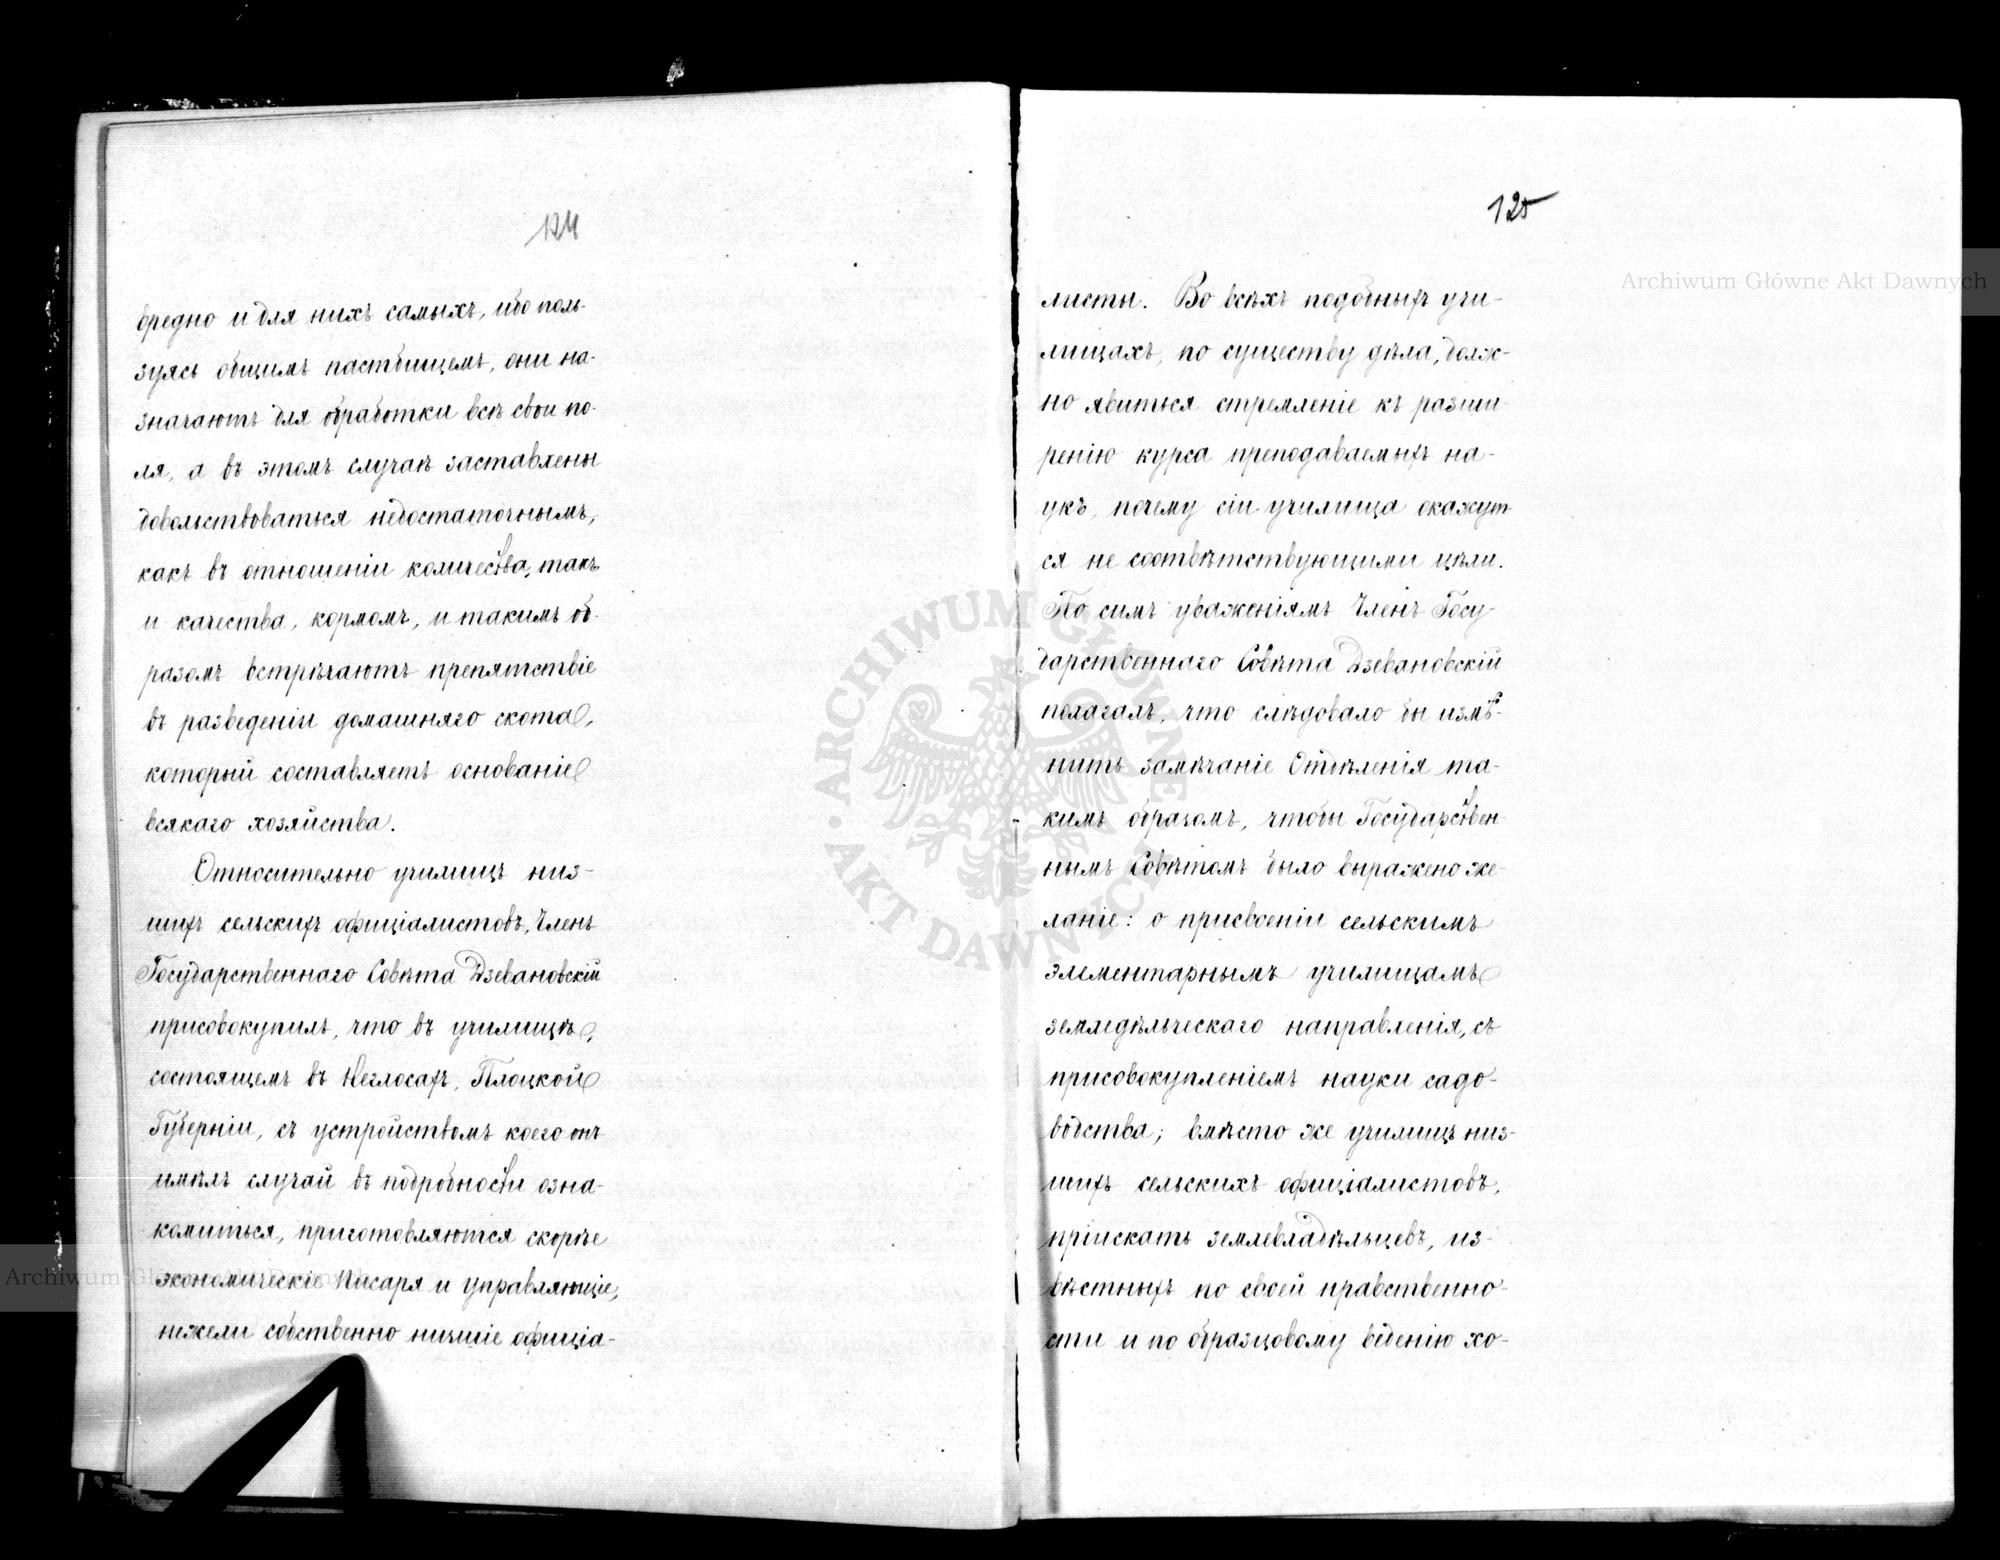 124
вредно и для нихъ самыхъ, ибо поль-
зуясь общимъ пастбищемъ, они на-
значаютъ для обработки всѣ свои по-
ля, а въ этомъ случаѣ заставлены
довольствоваться недостаточнымъ,
какъ въ отношеніи количества, такъ
и качества, кормомъ, и такимъ об-
разомъ встрѣчаютъ препятствіе
въ разведеніи домашняго скота,
который составляетъ основаніе
всякаго хозяйства.
Относительно училищъ низ-
шихъ сельскихъ официалистовъ, Членъ
Государственнаго Совѣта Дзевановскій
присовокупилъ, что въ училищѣ,
состоящемъ въ Неглосахъ, Плоцкой
Губерніи, съ устройствомъ коего онъ
имѣлъ случай въ подробности озна-
комиться, приготовляются скорѣе
экономическіе Писаря и управляющіе,
нежели собственно низшіе официа-
125
листы. Во всѣхъ подобныхъ учи-
лищахъ, по существу дѣла, долж-
но явиться стремленіе къ разши-
ренію курса преподаваемыхъ на-
укъ, почему сіи училища окажут
ся не соотвѣтствующими цѣли.
По симъ уваженіямъ Членъ Госу-
дарственнаго Совѣта Дзевановскій
полагалъ, что слѣдовало бы измѣ-
нить замѣчаніе Отдѣленія та-
кимъ образомъ, чтобы Государствен-
нымъ Совѣтомъ было выражено же-
ланіе: о присвоеніи сельскимъ
элементарнымъ училищамъ
земледѣльческаго направленія, съ
присовокупленіемъ науки садо-
водства; вмѣсто же училищъ низ-
шихъ сельскихъ официалистовъ,
пріискать землевладѣльцевъ, из-
вѣстныхъ по своей нравственно-
сти и по образцовому веденію хо-
Archiwum Główne Akt Dawnych
Archiwum Główne Akt Dawnych
ARCHIWUM GŁÓWNE · AKT DAWNYCH ·